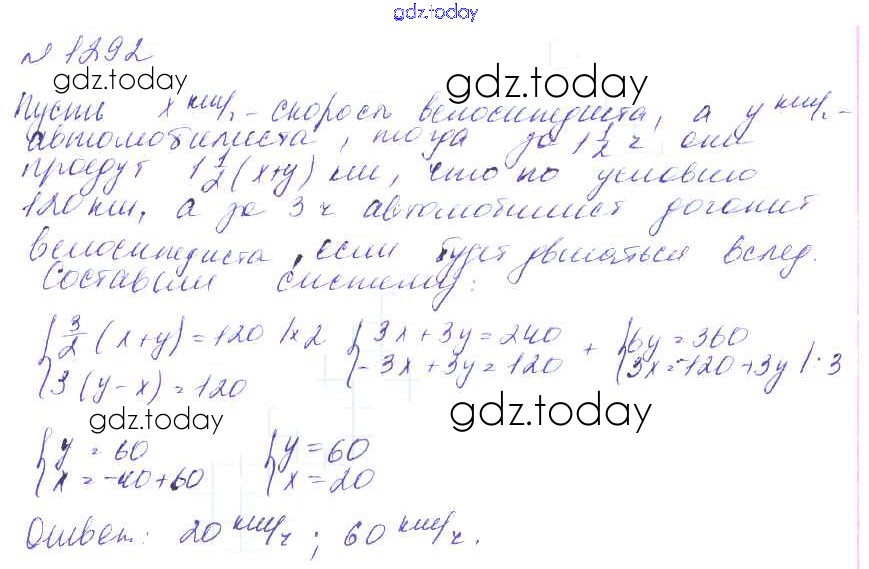 gdz.today
№ 1292
gdz.today gdz.today
Пусть x км/ч - скорость велосипедиста, а y км/ч -
автомобилиста, тогда за 1 1/2 ч они
проедут 1 1/2 (x+y) км, что по условию
120 км, а за 3 ч автомобилист догонит
велосипедиста, если будет двигаться вслед.
Составим систему:
{ 3/2 (x+y) = 120 |×2 { 3x + 3y = 240 + { 6y = 360
3 (y - x) = 120 - 3x + 3y = 120 3x = -120 + 3y |: 3
gdz.today gdz.today
{ y = 60 { y = 60
x = -40 + 60 x = 20
Ответ: 20 км/ч ; 60 км/ч.